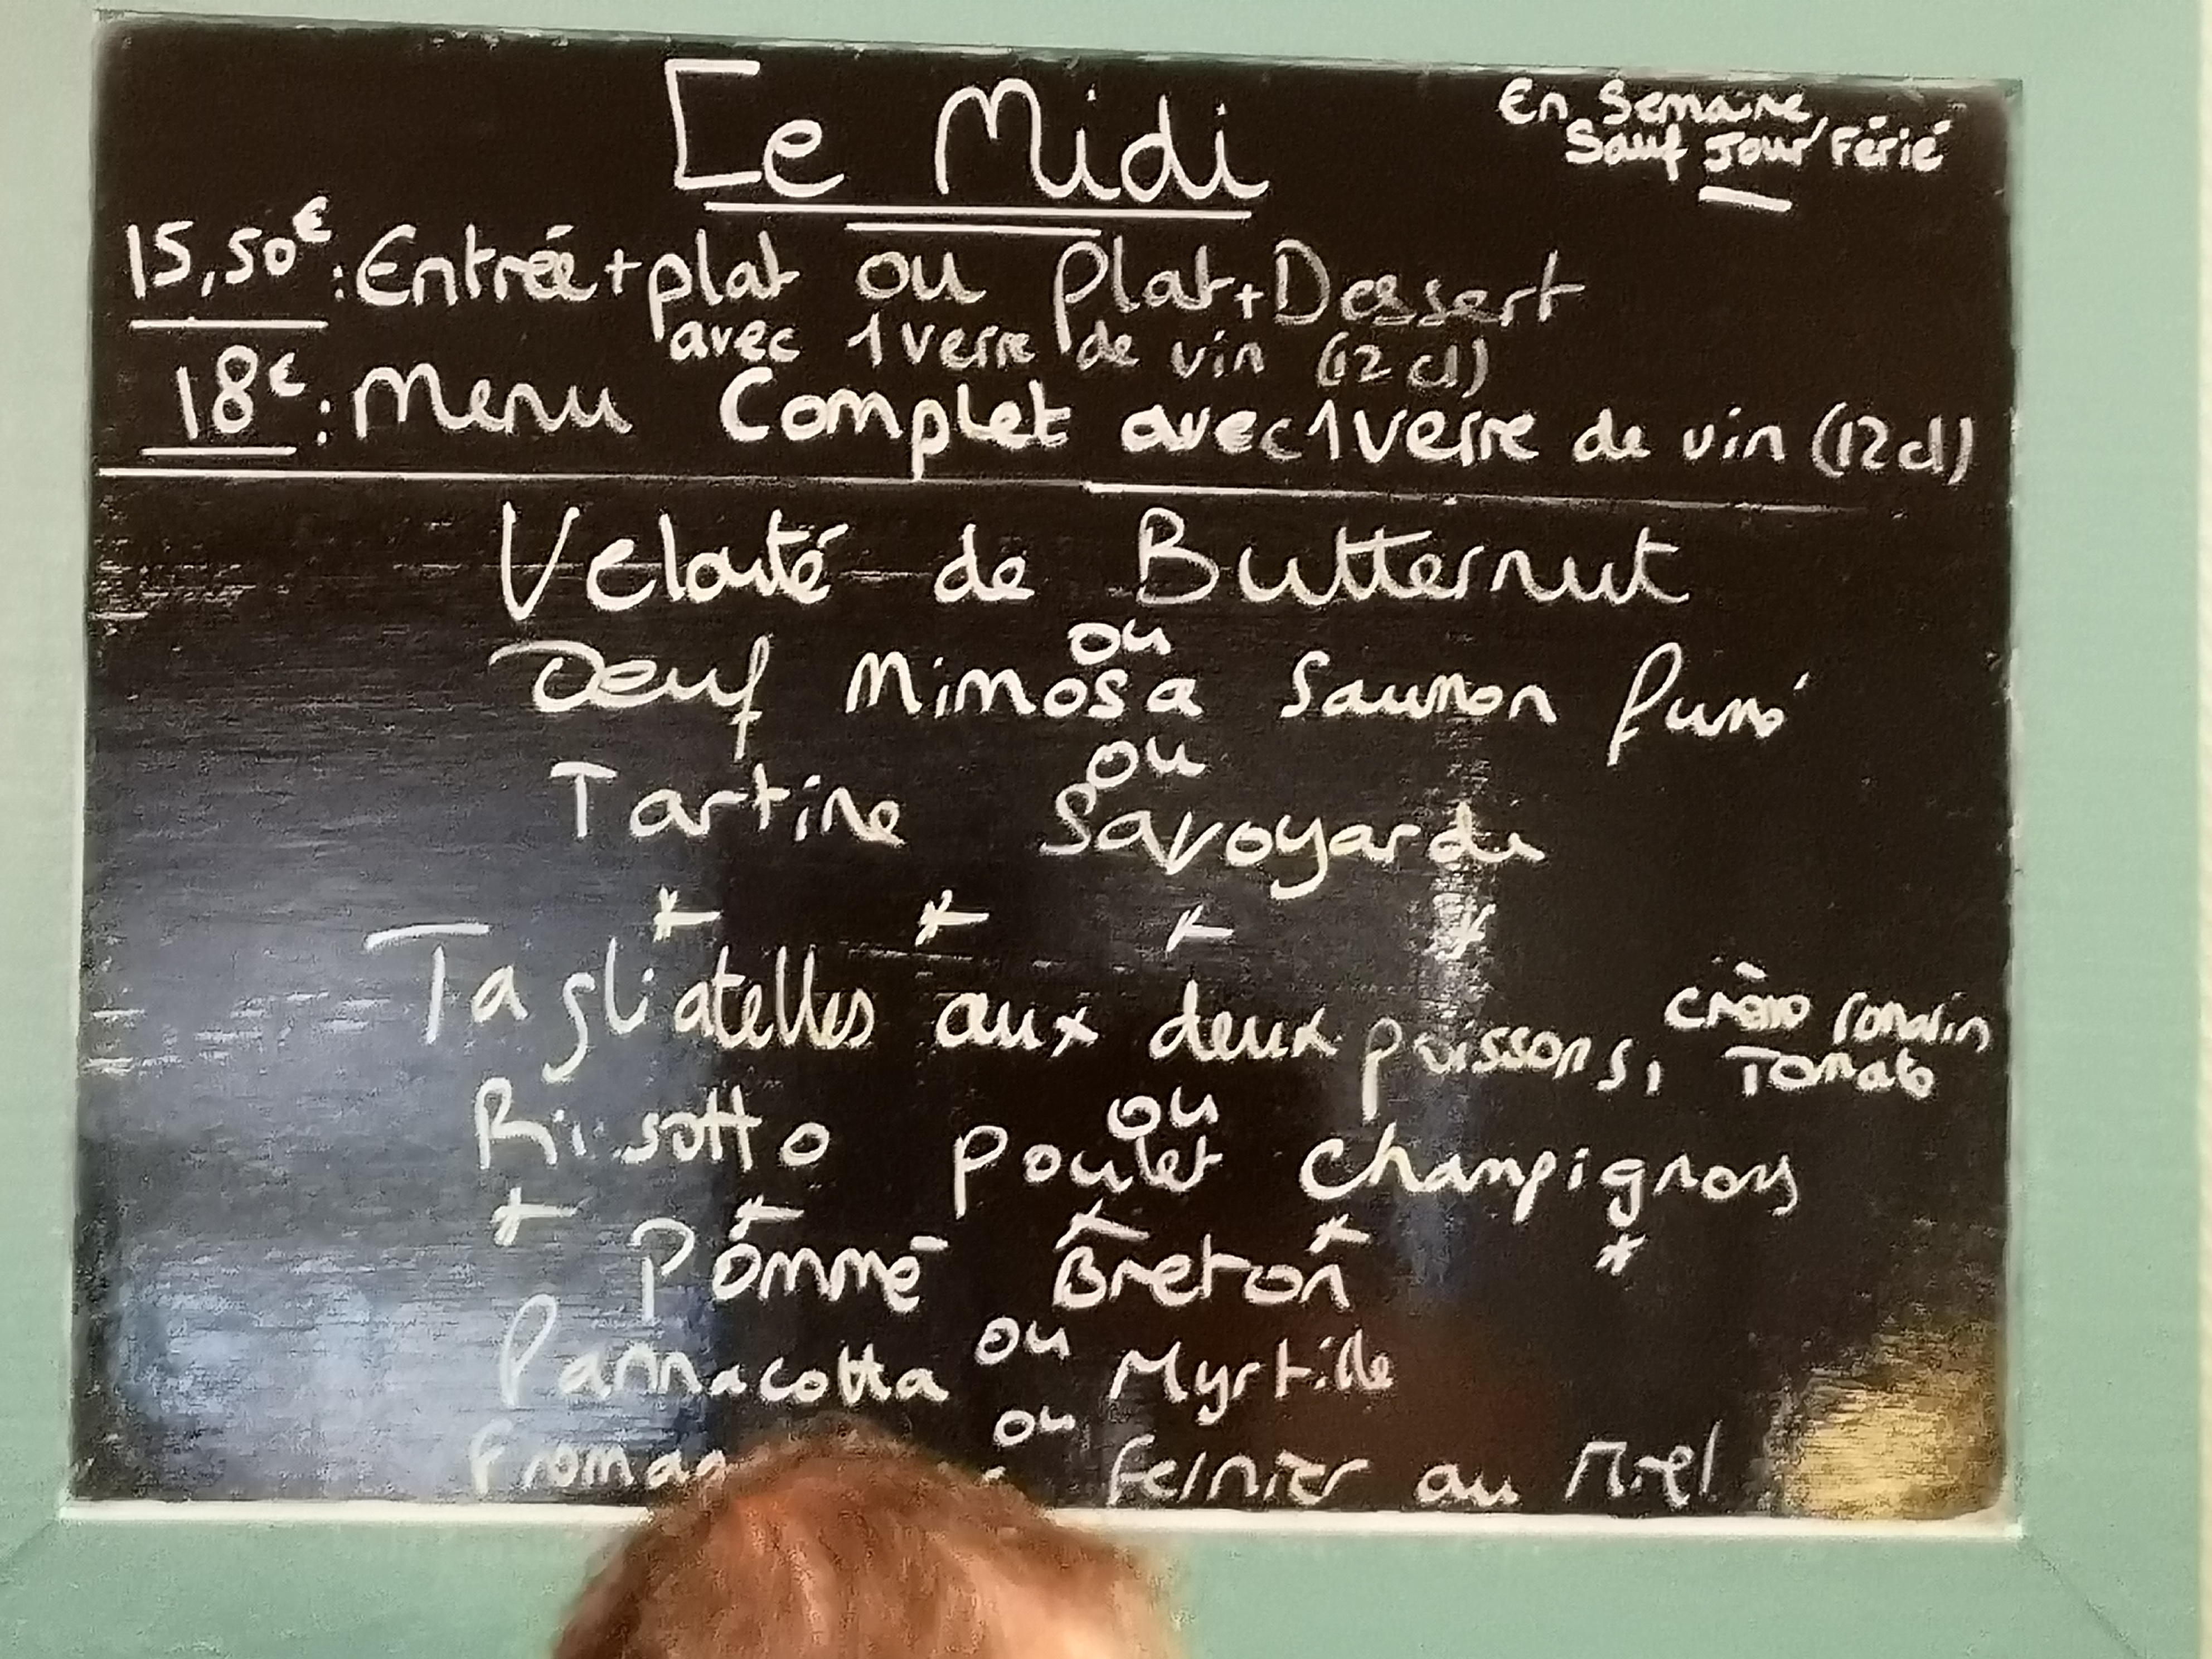 Le Midi
En Semaine,
Sauf Jour Férié
15,50€ : Entrée + plat ou Plat + Dessert
avec 1 verre de vin (12 cl)
18€ : Menu Complet avec 1 verre de vin (12 cl)
Velouté de Butternut
ou
Oeuf Mimosa Saumon fumé
ou
Tartine Savoyarde
* * * *
Tagliatelles aux deux poissons, crème romarin
Tomate
ou
Risotto poulet champignons
* * * * *
Pommé Breton
ou
Pannacotta Myrtille
ou
fermier au Miel